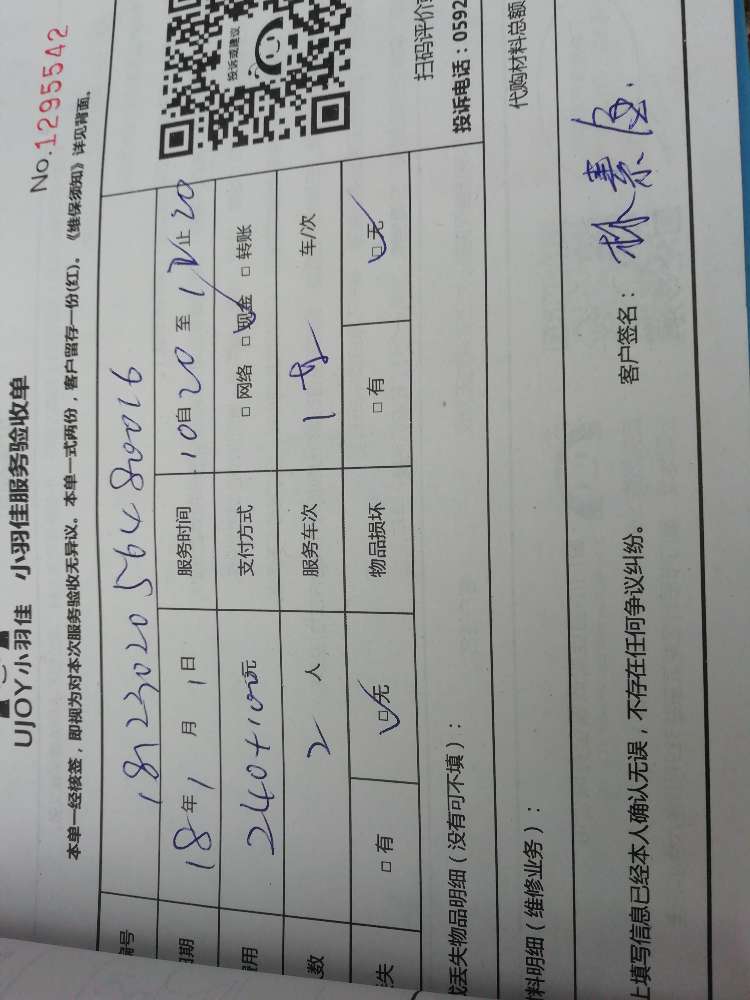 UJOY小羽佳 小羽佳服务验收单
No.1295542
本单一经核签，即视为对本次服务验收无异议。本单一式两份，客户留存一份(红)。《维保须知》详见背面。
编号
日期 18年1月1日 服务时间 10自20至12止20
费用 240+100元 支付方式 □网络 □现金 □转账
数 2人 服务车次 1 车/次
失 □有 □无 物品损坏 □有 □无
投诉或建议
扫码评价
投诉电话：0592
或丢失物品明细（没有可不填）：
料明细（维修业务）： 代购材料总额
上填写信息已经本人确认无误，不存在任何争议纠纷。 客户签名：林素